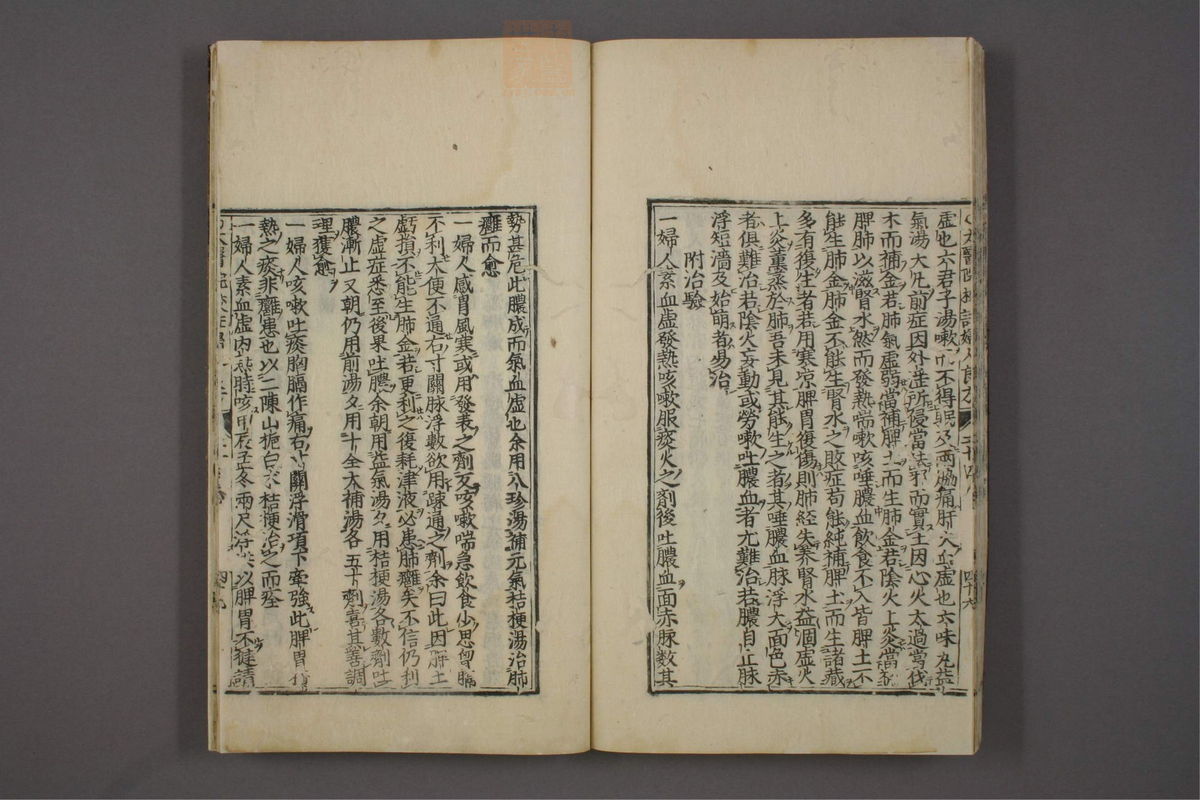 虚也六君子湯嗽而不得眠及兩脇痛肝火虚也六味丸益
氣湯大凢前症因外邪所侵當法而實土因心火太過當伐
木而補金若肺氣虚弱當補脾土而生肺金若陰火上炎當
脾肺以滋腎水然而發熱喘嗽咳唾膿血飲食不入皆脾土不
能生肺金肺金不能生腎水之敗症苟能純補脾土而生諸藏
多有復生者若用寒凉脾胃復傷則肺經失養腎水益涸虚火
上炎熏蒸於肺吾未見其能生之者其唾膿血脉浮大面色赤
者俱難治若陰火妄動或勞嗽吐膿血者尤難治若膿自止脉
浮短濇及始萌者易治
附治驗
一婦人素血虚發熱咳嗽服痰火之劑後吐膿血面赤脉數其
勢甚危此膿成而氣血虚也余用八珍湯補元氣桔梗湯治肺
癰而愈
一婦人感冒風寒或用發表之劑反咳嗽喘急飲食少思胷膈
不利大便不通右寸關脉浮數欲用踈通之劑余曰此因脾土
虧損不能生肺金若更利之復耗津液必患肺癰矣不信仍利
之虚症悉至後果吐膿余朝用益氣湯夕用桔梗湯各數劑吐
膿漸止又朝仍用前湯夕用十全大補湯各五十劑喜其善調
理獲愈
一婦人咳嗽吐痰胸膈作痛右寸關浮滑項下牽強此脾胃
熱之痰非癰患也以二陳山梔白朮桔梗治之而痊
一婦人素血虚内熱時咳甲辰孟冬兩尺浮以脾胃不健請